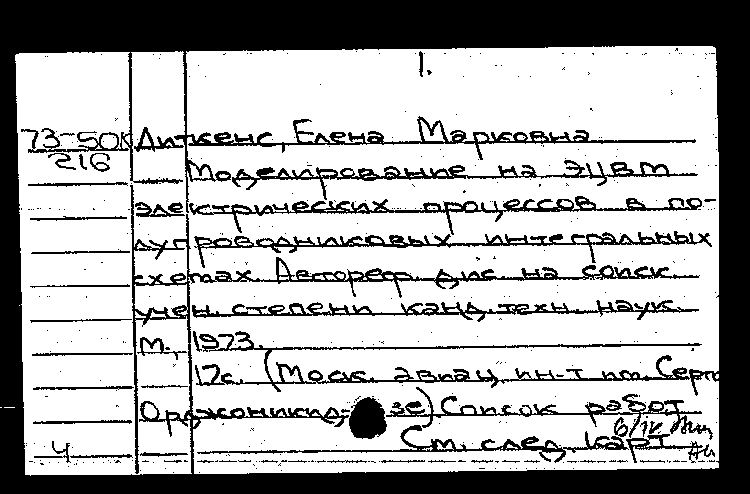 1.
73-50К Диткенс, Елена Марковна
216 Моделирование на ЭЦВМ
электрических процессов в по-
лупроводниковых интегральных
схемах. Автореф. дис. на соиск.
учен. степени канд. техн. наук.
М., 1973.
17с. (Моск. авиац. ин-т им. Серго
Орджоникидзе) Список работ
4 См. след. карт